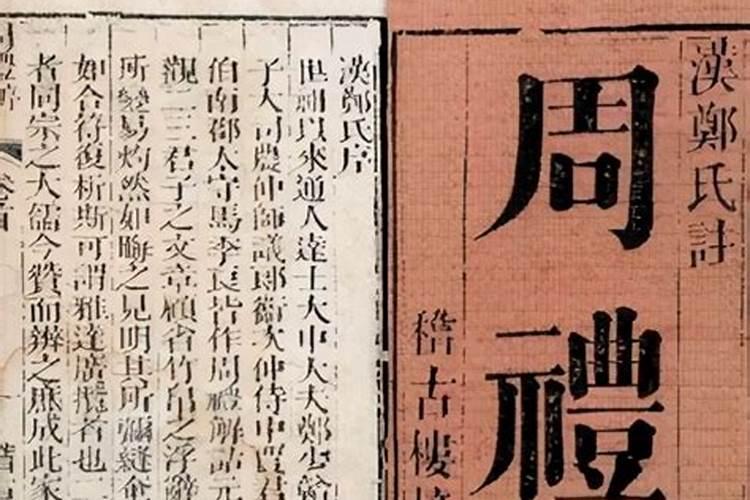 漢鄭氏註
周禮
稽古樓
漢鄭氏序
世祖以來通人達士大中大夫鄭少
子大司農仲師議郎衛次仲侍中賈君
伯南郡太守馬季長皆作周禮解詁元
觀二三君子之文章顧省竹帛之浮辭
所變易灼然如晦之見明其所彌縫奄
如合符復析斯可謂雅達廣攬者也二
者同宗之大儒今贊而辨之庶成此家
卷首